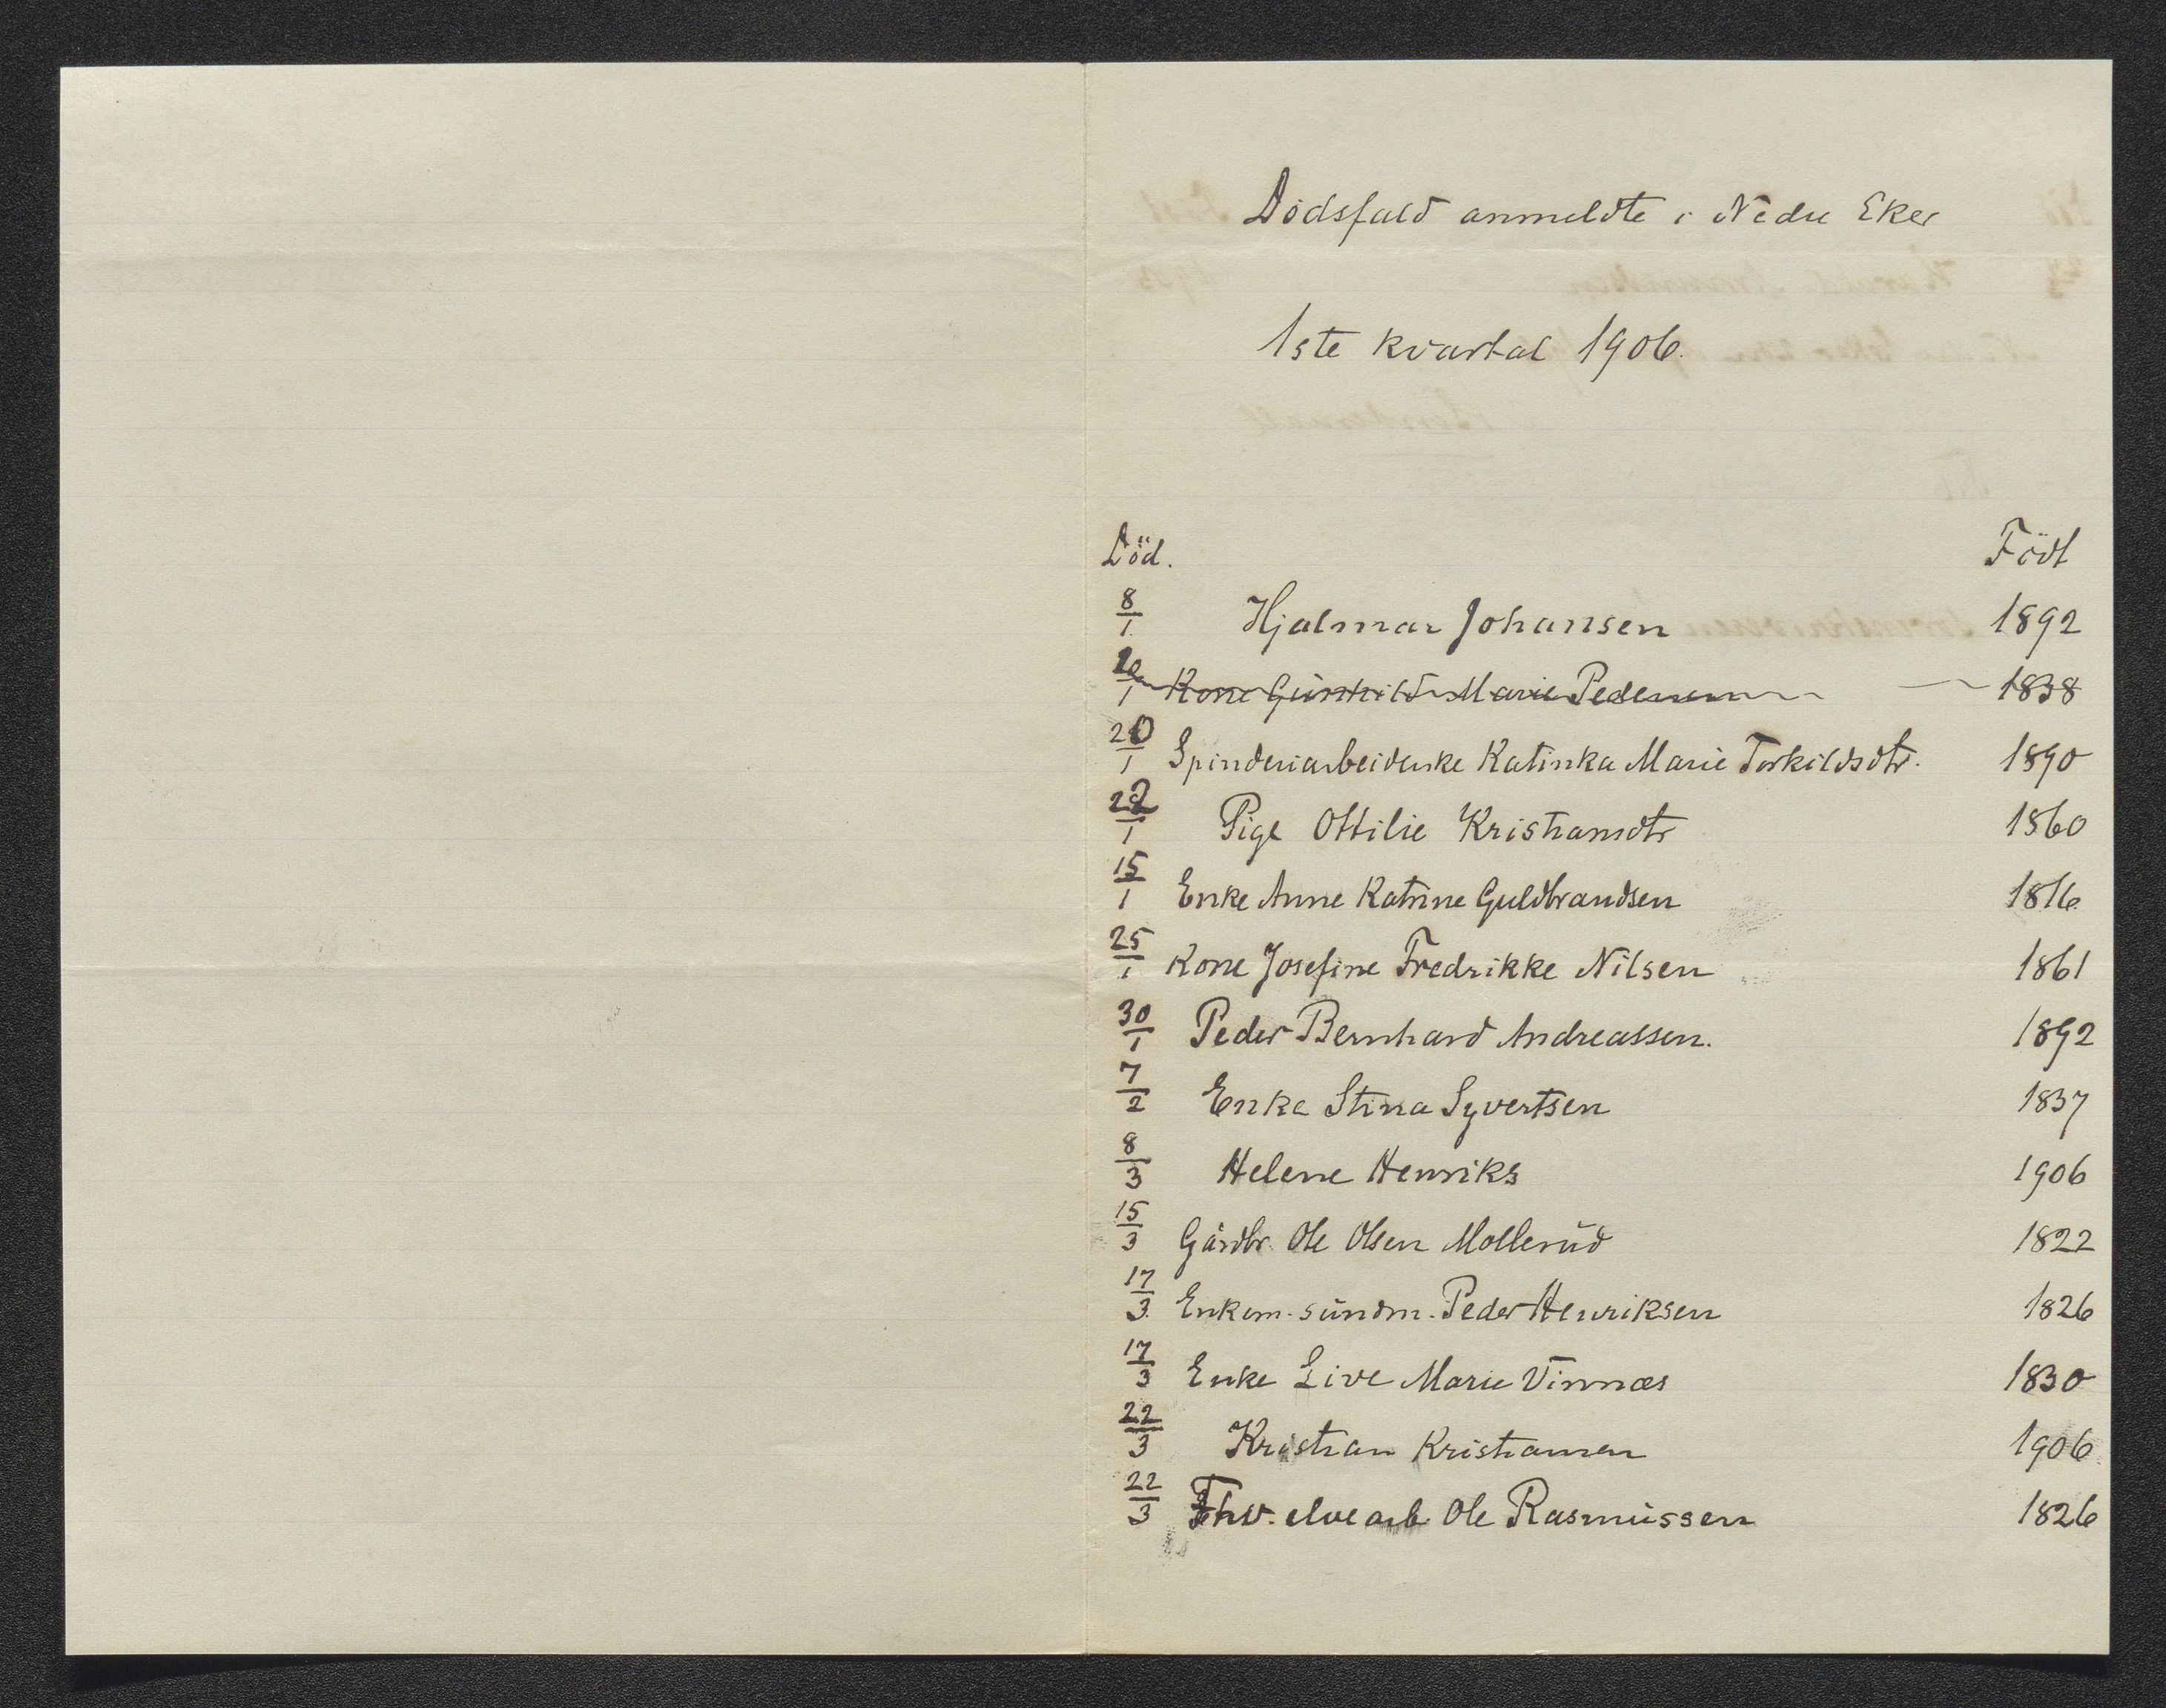 Dödsfald anmeldte i Nedre Eker
1ste kvartal 1906.
Död. Födt
8/1 Hjalmar Johansen 1892
20/1 Kone Gunhild Marie Pedersen 1838
20/1 Spinderiarbeiderske Katinka Marie Torkildsdtr. 1890
22/1 Pige Ottilie Kristiansdtr 1860
15/1 Enke Anne Katrine Guldbrandsen 1816
25/1 Kone Josefine Fredrikke Nilsen 1861
30/1 Peder Bernhard Andreassen. 1892
7/2 Enke Stina Syvertsen 1837
8/3 Helene Henriks 1906
15/3 Gårdbr. Ole Olsen Mollerud 1822
17/3 Enkem. sündm. Peder Henriksen 1826
17/3 Enke Live Marie Vinnæs 1830
22/3 Kristian Kristiansen 1906
22/3 Fhv. elvearb. Ole Rasmussen 1826